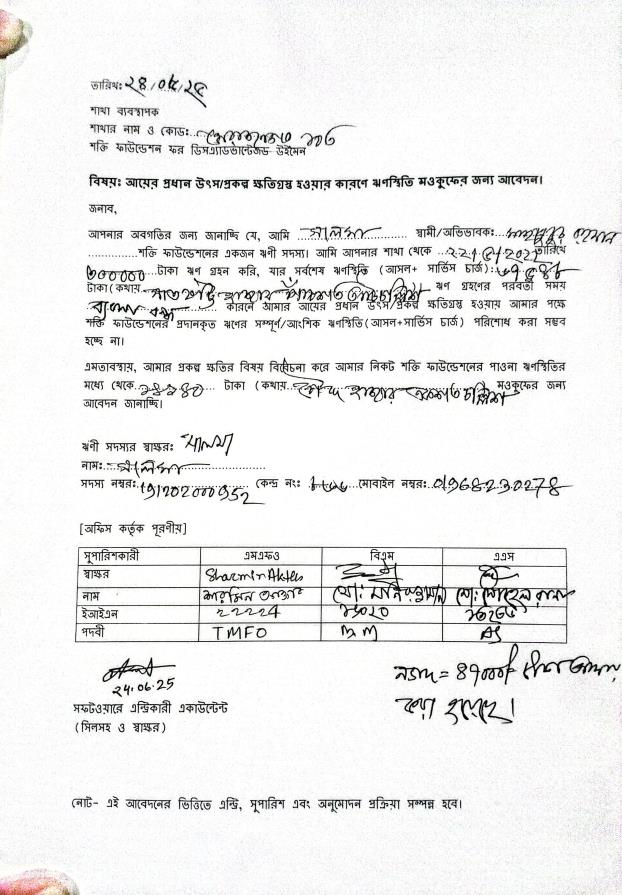 তারিখঃ ২৪/০৬/২৫
শাখা ব্যবস্থাপক
শাখার নাম ও কোডঃ
শক্তি ফাউন্ডেশন ফর ডিসএ্যাডভান্টেজড উইমেন
বিষয়ঃ আয়ের প্রধান উৎস/প্রকল্প ক্ষতিগ্রস্থ হওয়ার কারণে ঋণস্থিতি মওকুফের জন্য আবেদন।
জনাব,
আপনার অবগতির জন্য জানাচ্ছি যে, আমি সালমা স্বামী/অভিভাবকঃ রহমান
শক্তি ফাউন্ডেশনের একজন ঋণী সদস্য। আমি আপনার শাখা থেকে তারিখে
টাকা ঋণ গ্রহন করি, যার সর্বশেষ ঋণস্থিতি (আসল+ সার্ভিস চার্জ):
টাকা (কথায়ঃ হাজার ঋণ গ্রহণের পরবর্তী সময়
কারনে আমার আয়ের প্রধান উৎস/প্রকল্প ক্ষতিগ্রস্থ হওয়ায় আমার পক্ষে
শক্তি ফাউন্ডেশনের প্রদানকৃত ঋণের সম্পূর্ণ/আংশিক ঋণস্থিতি (আসল+সার্ভিস চার্জ) পরিশোধ করা সম্ভব
হচ্ছে না।
এমতাবস্থায়, আমার প্রকল্প ক্ষতির বিষয় বিবেচনা করে আমার নিকট শক্তি ফাউন্ডেশনের পাওনা ঋণস্থিতির
মধ্যে থেকে টাকা (কথায়ঃ হাজার মওকুফের জন্য
আবেদন জানাচ্ছি।
ঋণী সদস্যর স্বাক্ষরঃ সালমা
নামঃ সালমা
সদস্য নম্বরঃ 191202000952 কেন্দ্র নং: মোবাইল নম্বরঃ 01968230278
[অফিস কর্তৃক পূরণীয়]
সুপারিশকারী এমএফও বিএম এএস
স্বাক্ষর Sharmin Akter
নাম শারমিন আক্তার মো: মনিরুজ্জামান মো: সোহেল রানা
ইআইএন 22224
পদবী TMFO BM AS
24.06.25
নগদ = 87000/-
করা হয়েছে।
সফটওয়ারে এন্ট্রিকারী একাউন্টেন্ট
(সিলসহ ও স্বাক্ষর)
নোট- এই আবেদনের ভিত্তিতে এন্ট্রি, সুপারিশ এবং অনুমোদন প্রক্রিয়া সম্পন্ন হবে।